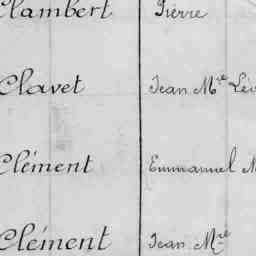 Clambert Pierre
Clavet Jean Mie
Clément Emmanuel M
Clément Jean Mie